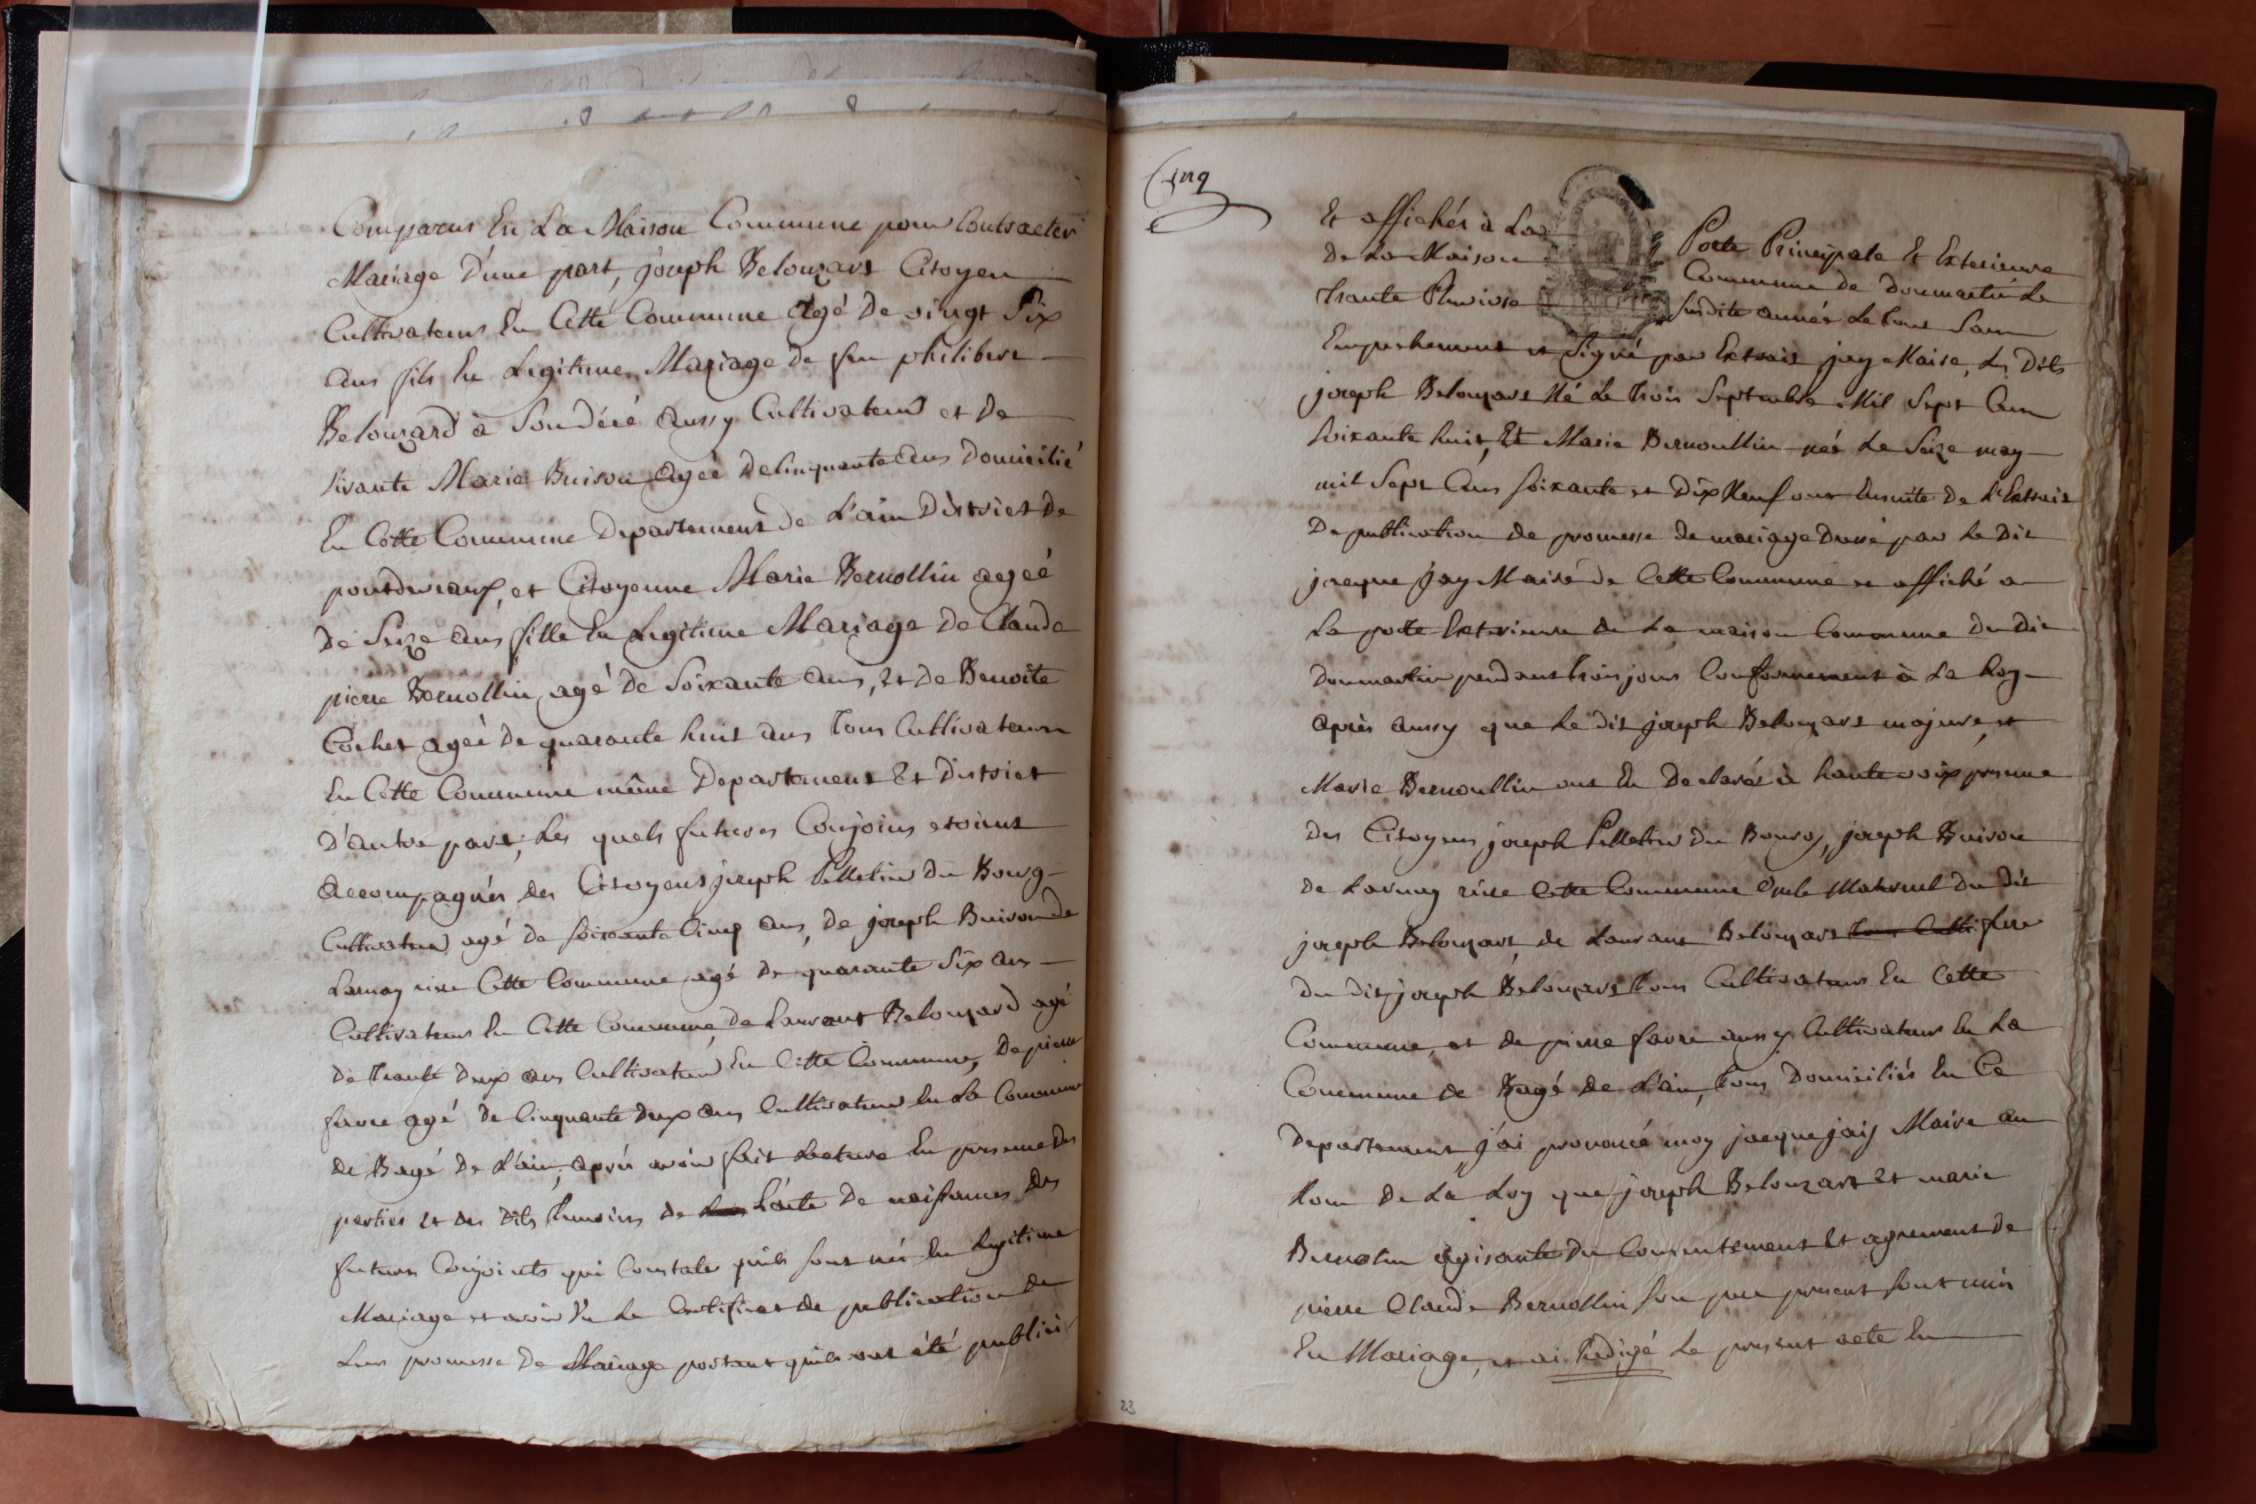 Comparus En La Maison Commune pour Contracter
Mariage D'une part, joseph Belouzart Citoyen
Cultivateur En Cette Commune Agé De vingt Six
ans fils En Legitime Mariage de feu philibert
Belouzard à Son décé aussy Cultivateur et De
vivante Marie Buison agée De Cinquante ans Domicilié
En Cette Commune Departement de L'ain District De
pontdevaux, et Citoyenne Marie Bernollin ageé
de Seize ans fille En Legitime Mariage De Claude
pierre Bernollin agé de Soixante ans, Et De Benoite
Cochet ageé De quarante huit ans Tous Cultivateurs
En Cette Commune même Departement Et District
D'autre part, Les quels futures Conjoins etoient
accompagnés des Citoyens joseph Pelletier du Bourg
Cultivateur agé de soixante Cinq ans, de joseph Buison de
Larnay riere Cette Commune agé de quarante Six ans
Cultivateur En Cette Commune, de Laurant Belouzard agé
de Trante deux ans Cultivateur En Cette Commune, De pierre
favre agé de Cinquante deux ans Cultivateur En La Commune
de Bagé De L'ain, après avoir fait Lecture En presence Des
parties et des Dits Temoins de L'acte De naissances Des
futurs Conjoints qui Constate quils sont nés En Legitime
Mariage et avoir Vu Le Certificat de publication de
Leur promesse De Mariage portant quils ont été publiés
Cinq
Et affichés à La Porte Principale Et Exterieure
De La Maison Commune de Doumartin Le
Trante Pluviose susdite année Le tout Sans
Empechement et Signé par Extrait jay Maire, Les Dits
joseph Belouzart Né Le Trois Septembre Mil Sept Cens
soixante huit, Et Marie Bernoullin née Le Seize may
mil Sept Cens soixante et Dix Neuf ont Ensuite de L'Extrait
De publication de promesse de mariage Dressé par Le Dit
jacque jay Maire de Cette Commune et affiché a
La porte Exterieure de La maison Commune du Dit
Doumartin pendant trois jours Conformement à La Loy
après aussy que Le dit joseph Belouzart majeure, et
Marie Bernoullin ont En Declarés à haute voix presence
des Citoyens joseph Pelletier du Bourg, joseph Buison
de Larnay riere Cette Commune Oncle Maternel du dit
joseph Belouzart, de Laurant Belouzart tous Culti frere
du dit joseph Belouzart Tous Cultivateurs En Cette
Commune, et de pierre favre aussy Cultivateur En La
Commune de Bagé de L'ain, Tous Domiciliés En Ce
Departement, j'ai prononcé moy jacque jaiy Maire au
Nom De La Loy que joseph Belouzart Et marie
Bernolin agisante du Consentement Et agrement de
pierre Claude Bernollin son pere present sont unis
En Mariage, et ai Redigé Le present acte En
23